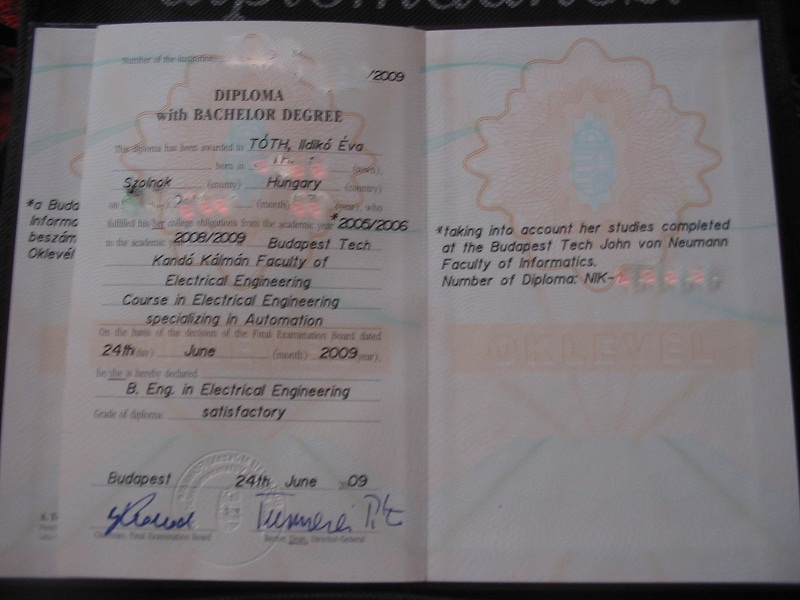 Number of the institution:
/2009
DIPLOMA
with BACHELOR DEGREE
This diploma has been awarded to TÓTH, Ildikó Éva
born in (town),
Szolnok (county) Hungary (country)
on (month) (year), who
fulfilled his/her college obligations from the academic year *2005/2006
to the academic 2008/2009 Budapest Tech
Kandó Kálmán Faculty of
Electrical Engineering
Course in Electrical Engineering
specializing in Automation
On the basis of the decision of the Final Examination Board dated
24th (day) June (month) 2009 (year),
he/she is hereby declared
B. Eng. in Electrical Engineering
Grade of diploma: satisfactory
Budapest 24th June 2009
Chairman, Final Examination Board
Rector, Dean, Director-General
*a Buda
Informa
beszám
Oklevél
*taking into account her studies completed
at the Budapest Tech John von Neumann
Faculty of Informatics.
Number of Diploma: NIK-
OKLEVÉL